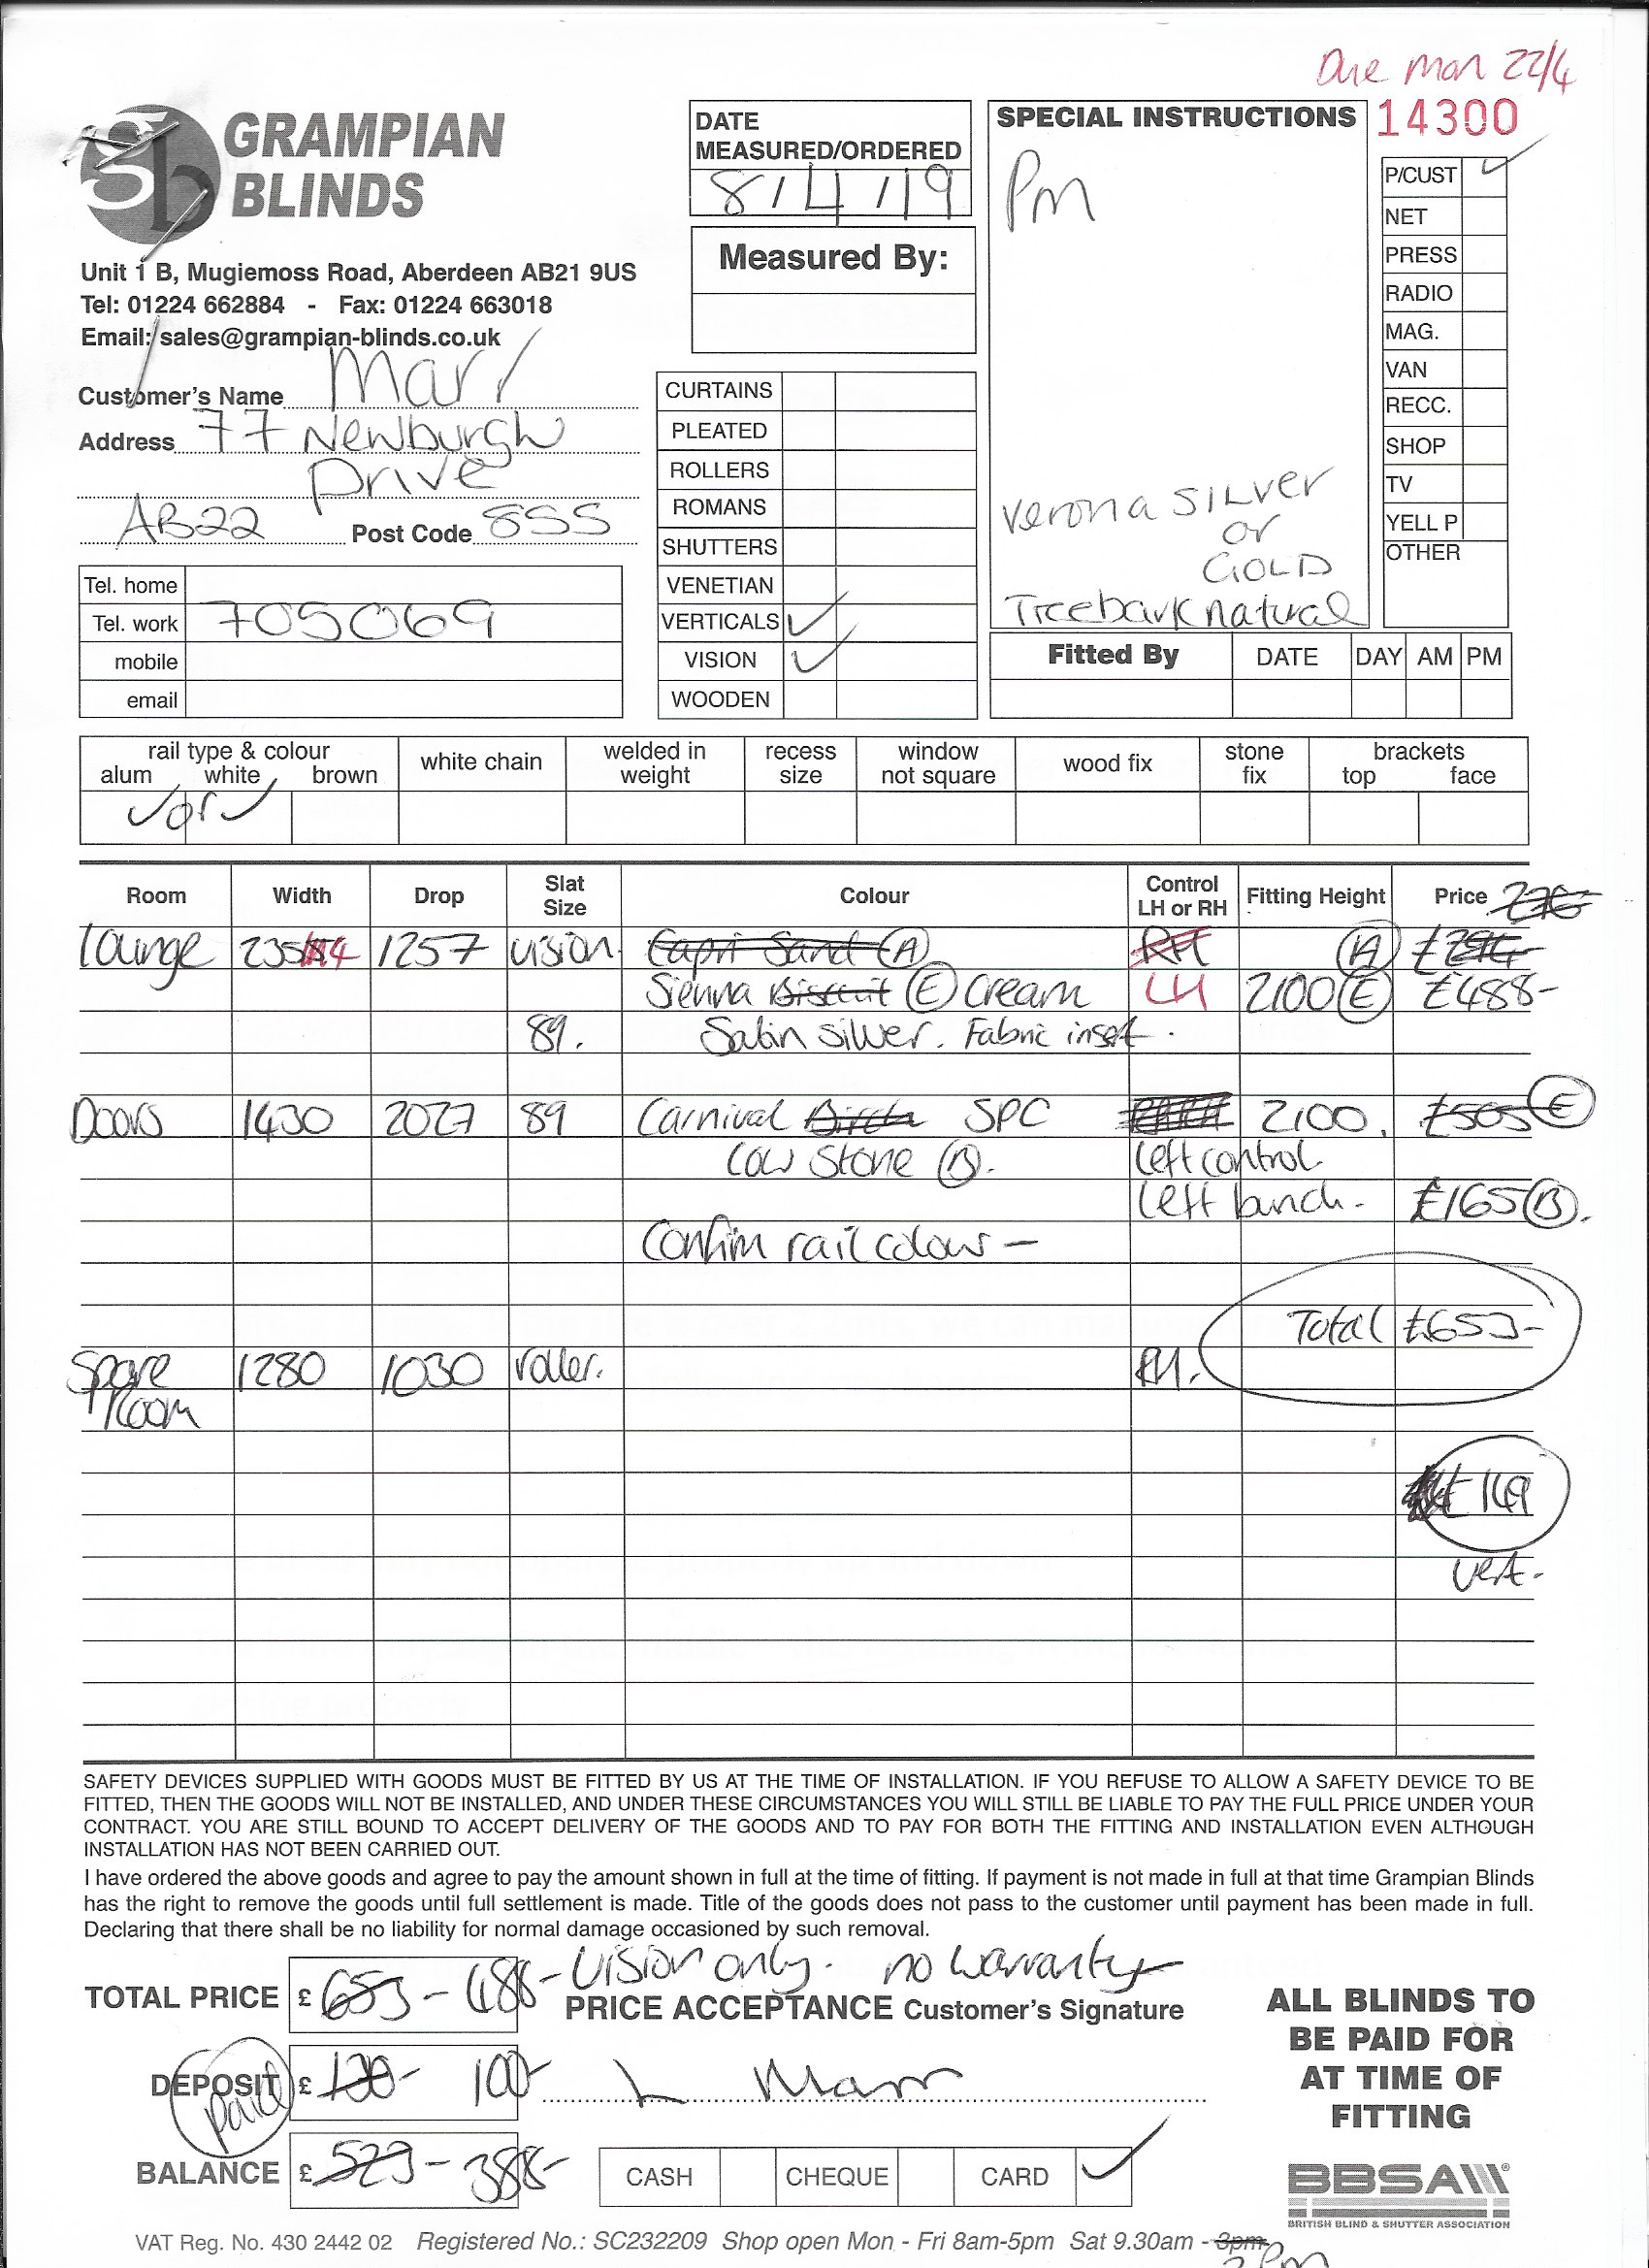 Due Mon 22/4
14300
GRAMPIAN
BLINDS
Unit 1 B, Mugiemoss Road, Aberdeen AB21 9US
Tel: 01224 662884 - Fax: 01224 663018
Email: sales@grampian-blinds.co.uk
Customer's Name Marr
Address 77 Newburgh
Drive
AB22 Post Code 8SS
Tel. home
Tel. work 705069
mobile
email
DATE
MEASURED/ORDERED
8/4/19
Measured By:
CURTAINS
PLEATED
ROLLERS
ROMANS
SHUTTERS
VENETIAN
VERTICALS ✓
VISION ✓
WOODEN
SPECIAL INSTRUCTIONS
Pm
Verona SILVER
or
GOLD
Treebark natural
P/CUST ✓
NET
PRESS
RADIO
MAG.
VAN
RECC.
SHOP
TV
YELL P
OTHER
Fitted By DATE DAY AM PM
rail type & colour
alum white brown
✓ or ✓
white chain
welded in
weight
recess
size
window
not square
wood fix
stone
fix
brackets
top face
Room Width Drop Slat Size Colour Control LH or RH Fitting Height Price
Lounge 2354 1257 vision. Capri Sand (A) RH (A)
Sienna Biscuit (E) Cream LH 2100 (E) £488-
89. Satin silver. Fabric inset.
Doors 1430 2027 89 Carnival SPC 2100. £505 (E)
Cow Stone (B). Left control
Left bunch. £165 (B).
Confirm rail colour -
Total £653-
Spare 1280 1030 roller. RH.
Room
£149
vert.
SAFETY DEVICES SUPPLIED WITH GOODS MUST BE FITTED BY US AT THE TIME OF INSTALLATION. IF YOU REFUSE TO ALLOW A SAFETY DEVICE TO BE
FITTED, THEN THE GOODS WILL NOT BE INSTALLED, AND UNDER THESE CIRCUMSTANCES YOU WILL STILL BE LIABLE TO PAY THE FULL PRICE UNDER YOUR
CONTRACT. YOU ARE STILL BOUND TO ACCEPT DELIVERY OF THE GOODS AND TO PAY FOR BOTH THE FITTING AND INSTALLATION EVEN ALTHOUGH
INSTALLATION HAS NOT BEEN CARRIED OUT.
I have ordered the above goods and agree to pay the amount shown in full at the time of fitting. If payment is not made in full at that time Grampian Blinds
has the right to remove the goods until full settlement is made. Title of the goods does not pass to the customer until payment has been made in full.
Declaring that there shall be no liability for normal damage occasioned by such removal.
TOTAL PRICE £ 653- 488- Vision only. no warranty
PRICE ACCEPTANCE Customer's Signature
DEPOSIT £ 130- 100- L Marr
paid
BALANCE £ 523- 388-
CASH CHEQUE CARD ✓
ALL BLINDS TO
BE PAID FOR
AT TIME OF
FITTING
BBSA
BRITISH BLIND & SHUTTER ASSOCIATION
VAT Reg. No. 430 2442 02 Registered No.: SC232209 Shop open Mon - Fri 8am-5pm Sat 9.30am - 3pm